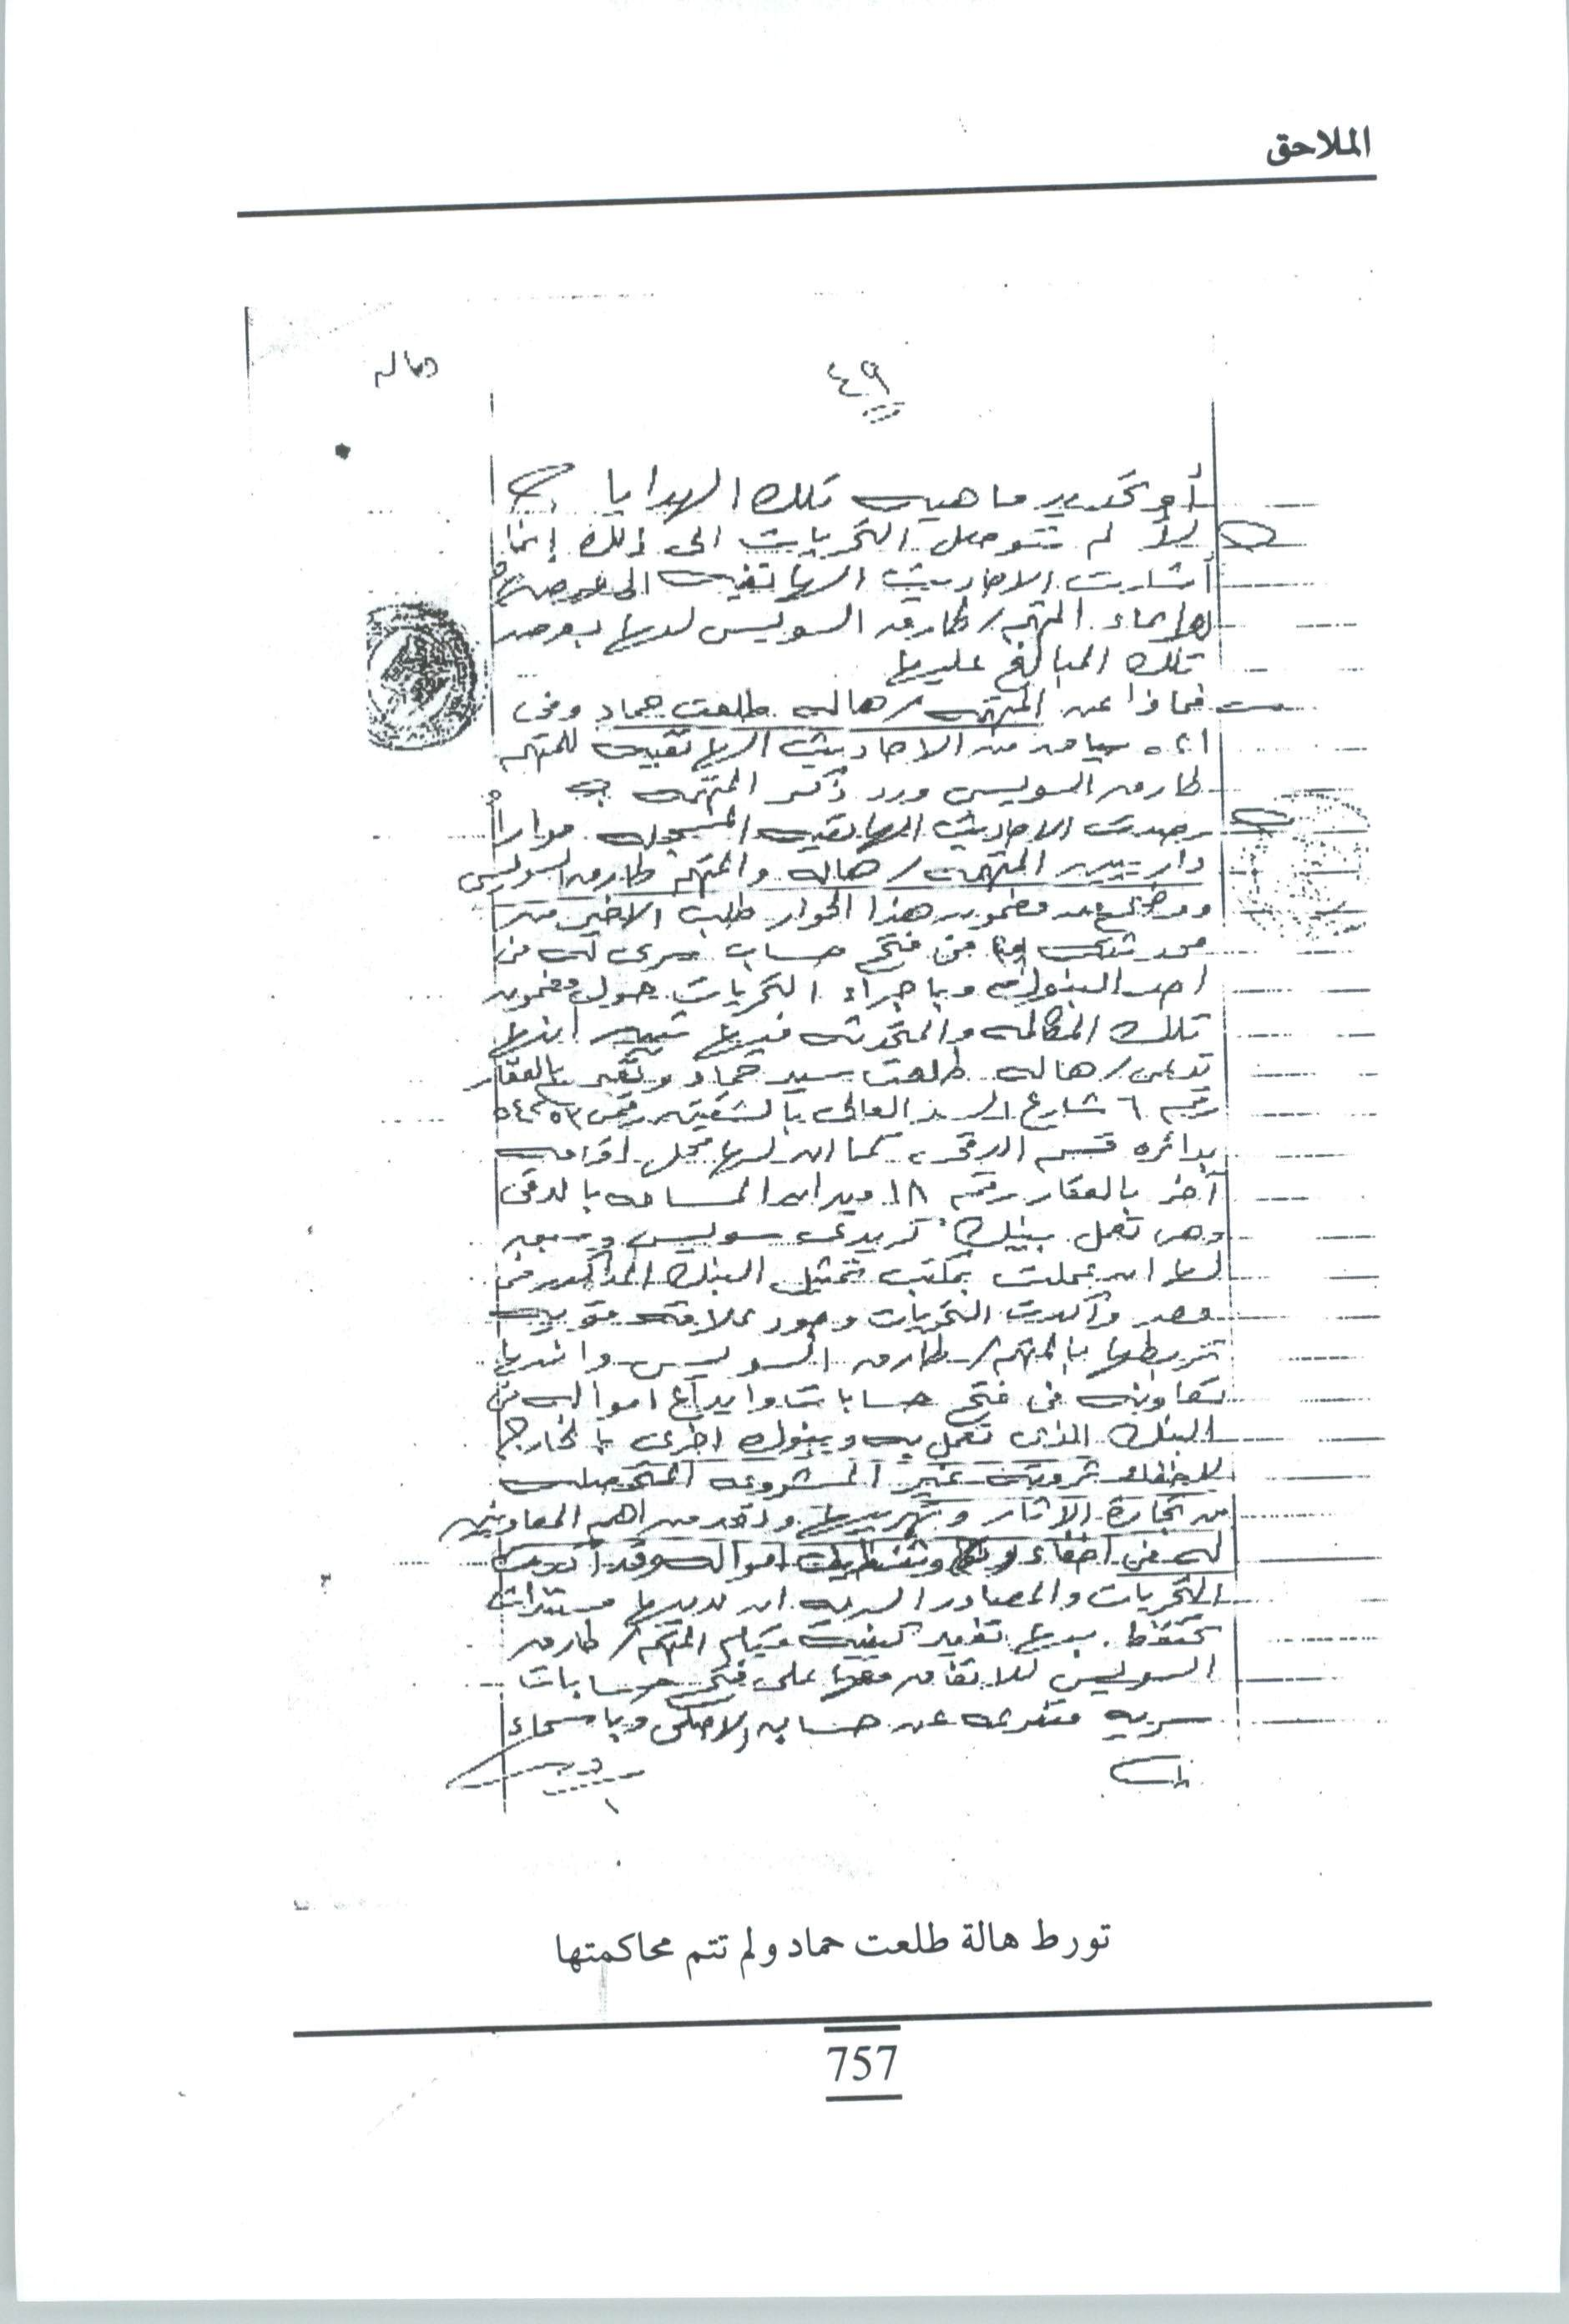 الملاحق
هاله
٤٩
أو تحديد ماهيه تلك الهدايا
لا لم تتوصل التحريات الى ذلك إنما
أشارت الاحاديث الهاتفيه الى
المتهم / طارق السويسى لها بعرض
تلك المبالغ عليها
فماذا عن المتهمه / هاله طلعت حماد وفى
سياق من الاحاديث الهاتفيه للمتهم
طارق السويسى ورد ذكر المتهمه
رصدت الاحاديث الهاتفيه المسجله حوارا
دار بين المتهمه / هاله والمتهم طارق السويسى
ومضمون هذا الحوار طلب الاخير من
محدثته فتح حساب سرى له فى
احد البنوك وباجراء التحريات حول مضمون
تلك المكالمه والمتحدثه فيها تبين انها
تدعى / هاله طلعت سيد حماد وتقيم بالعقار
رقم ٦ شارع السد العالى بالشقتين رقمى ٥٣ ، ٥٤
بدائره قسم الدقى ، كما ان لها محل اقامه
آخر بالعقار رقم ١٨ ميدان المساحه بالدقى
وهى تعمل ببنك كريدى سويس وسبق
لها ان عملت بمكتب تمثيل البنك المذكور فى
مصر وأكدت التحريات وجود علاقه قويه
تربطها بالمتهم / طارق السويسى وانها
تعاونه فى فتح حسابات وايداع امواله فى
البنك الذى تعمل به وبنوك اخرى بالخارج
لاخفاء ثروته غير المشروعه المتحصله
من تجارة الاثار وتهريبها وتعد من اهم المعاونين
له فى اخفاء وتنظيف امواله وقد أكدت
التحريات والمصادر السريه ان لديها مستندات
تحتفظ بها تفيد كيفيه قيام المتهم / طارق
السويسى للاتفاق معها على فتح حسابات
سريه متفرعه عن حسابه الاصلى وباسماء
تورط هالة طلعت حماد ولم تتم محاكمتها
757